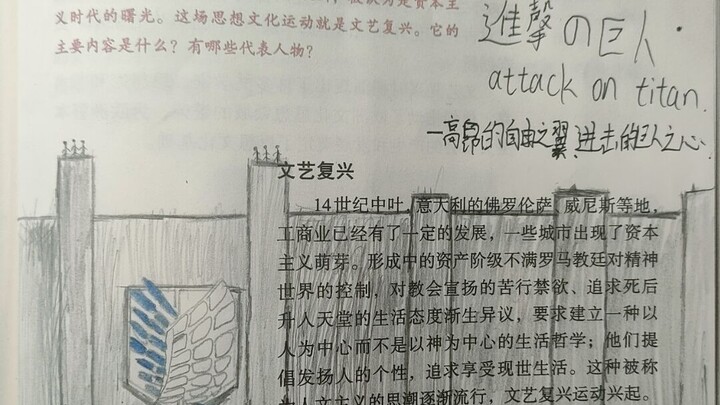 义时代的曙光。这场思想文化运动就是文艺复兴。它的
主要内容是什么？有哪些代表人物？
進撃の巨人.
attack on titan.
一高昂的自由之翼,进击的巨人之心.
文艺复兴
14世纪中叶,意大利的佛罗伦萨、威尼斯等地，
工商业已经有了一定的发展，一些城市出现了资本
主义萌芽。形成中的资产阶级不满罗马教廷对精神
世界的控制，对教会宣扬的苦行禁欲、追求死后
升入天堂的生活态度渐生异议，要求建立一种以
人为中心而不是以神为中心的生活哲学；他们提
倡发扬人的个性，追求享受现世生活。这种被称
为人文主义的思潮逐渐流行，文艺复兴运动兴起。